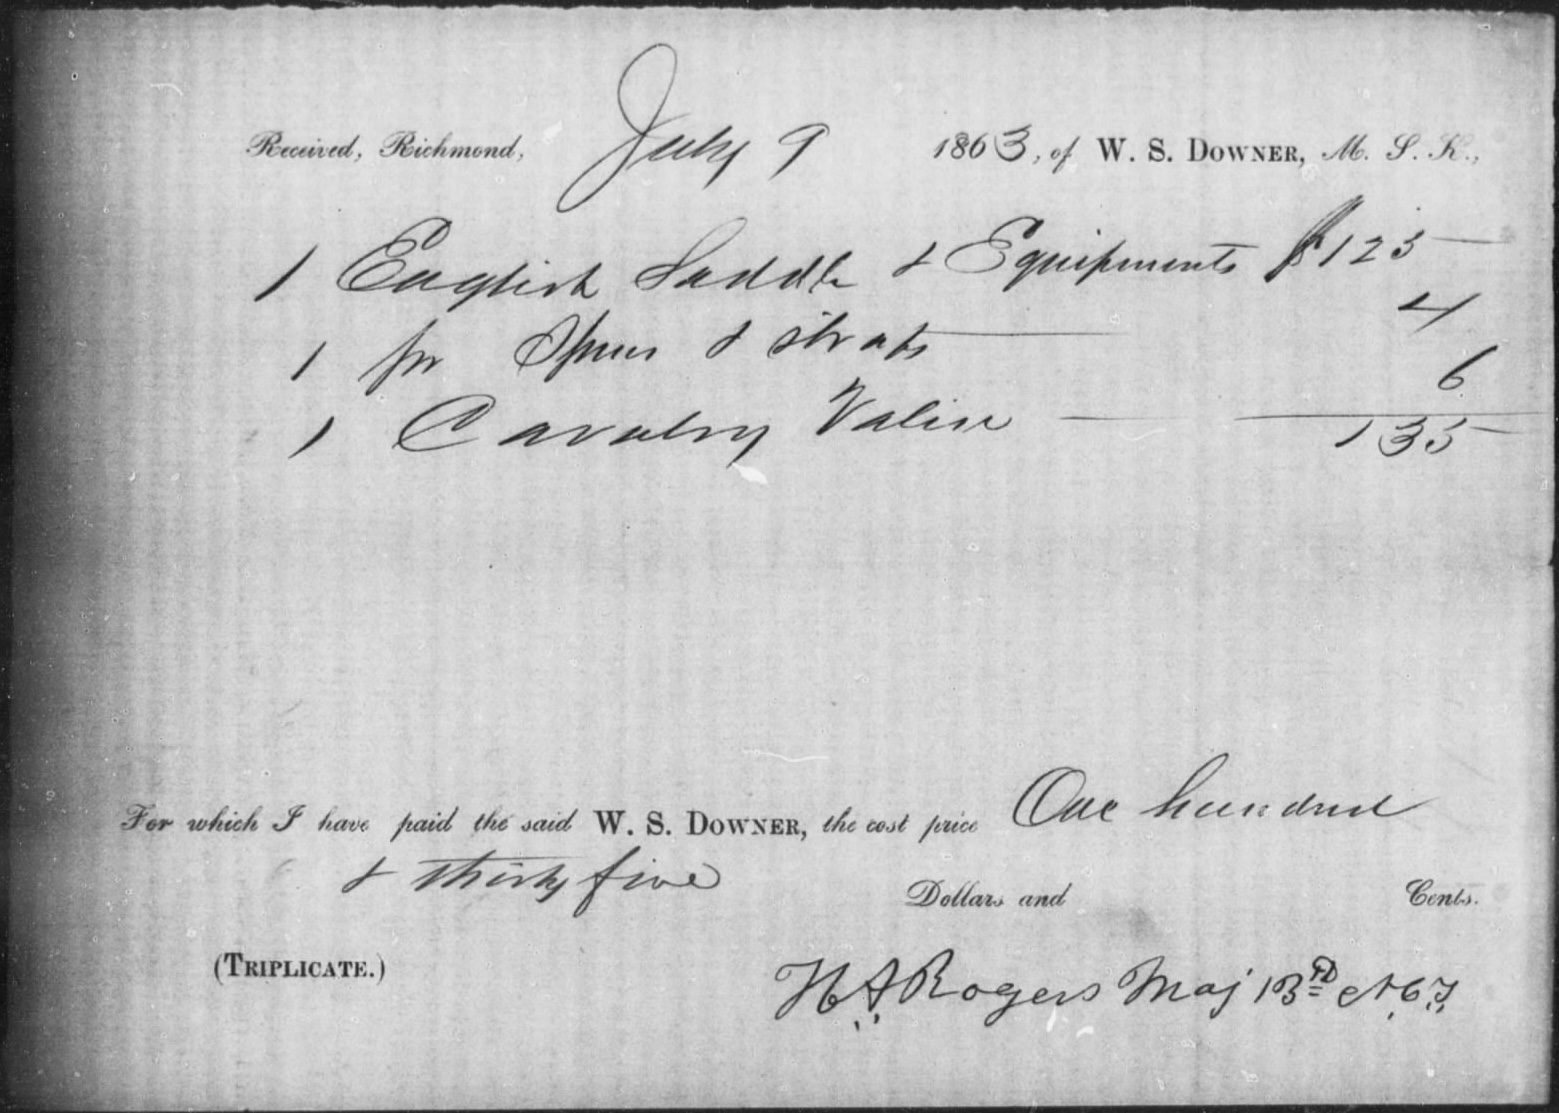 Received, Richmond, July 9 1863, of W. S. DOWNER, M. S. K.,
1 English Saddle & Equipments $125
1 pr Spurs & straps 4
1 Cavalry Valise 6
135
For which I have paid the said W. S. DOWNER, the cost price One hundred
& thirty five Dollars and Cents.
(TRIPLICATE.)
H A Rogers Maj 13TD N.C.T.